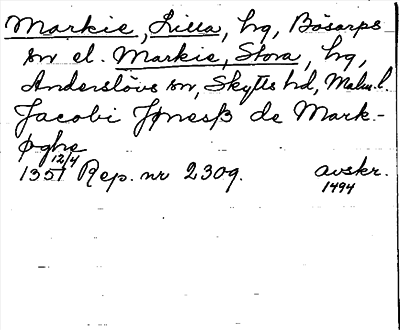 Markie, Lilla, hg, Bösarps
sn el. Markie, Stora, hg,
Anderslövs sn, Skytts hd, Malm. l.
Jacobi Jønesß de Mark-
øghe
12/4
1351 Rep. nr 2309. avskr.
1494